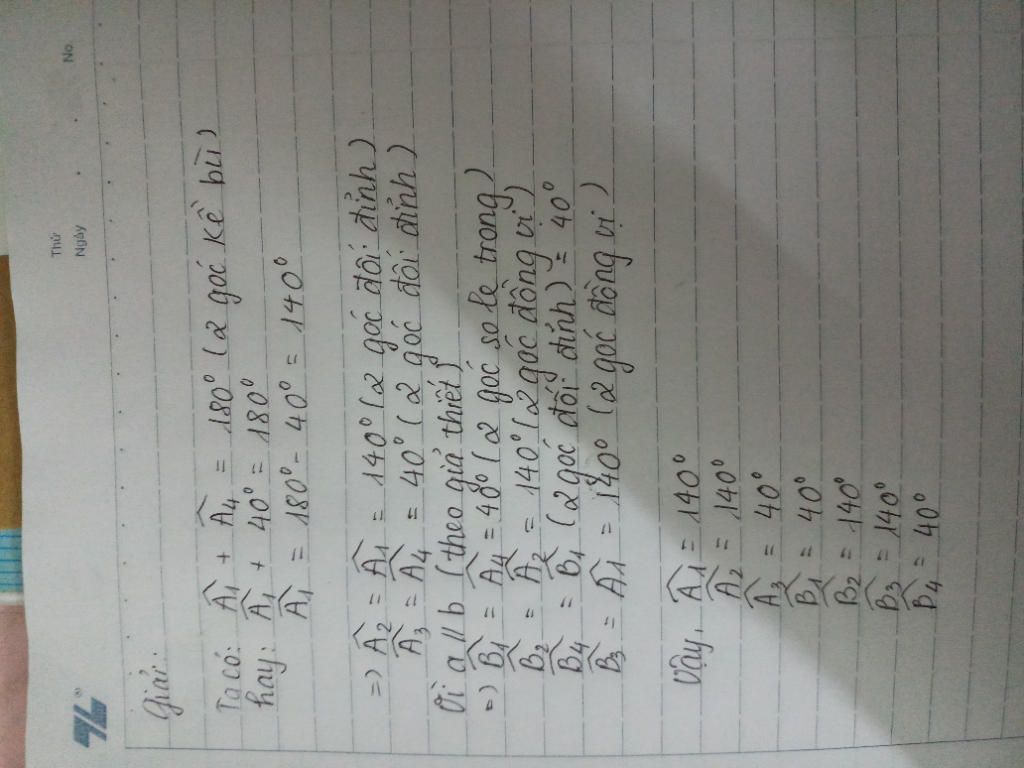 Thứ
Ngày
No.
Giải:
Ta có: Â1 + Â4 = 180° (2 góc kề bù)
hay: Â1 + 40° = 180°
Â1 = 180° - 40° = 140°
=> Â2 = Â1 = 140° (2 góc đối đỉnh)
Â3 = Â4 = 40° (2 góc đối đỉnh)
Vì a // b (theo giả thiết)
=> B̂1 = Â4 = 40° (2 góc so le trong)
B̂2 = Â2 = 140° (2 góc đồng vị)
B̂4 = B̂1 (2 góc đối đỉnh) = 40°
B̂3 = Â1 = 140° (2 góc đồng vị)
Vậy, Â1 = 140°
Â2 = 140°
Â3 = 40°
B̂1 = 40°
B̂2 = 140°
B̂3 = 140°
B̂4 = 40°